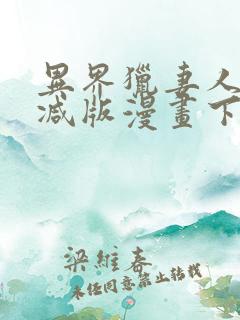 異界獵妻人
減版漫畫下
梁維春
未經同意禁止轉載